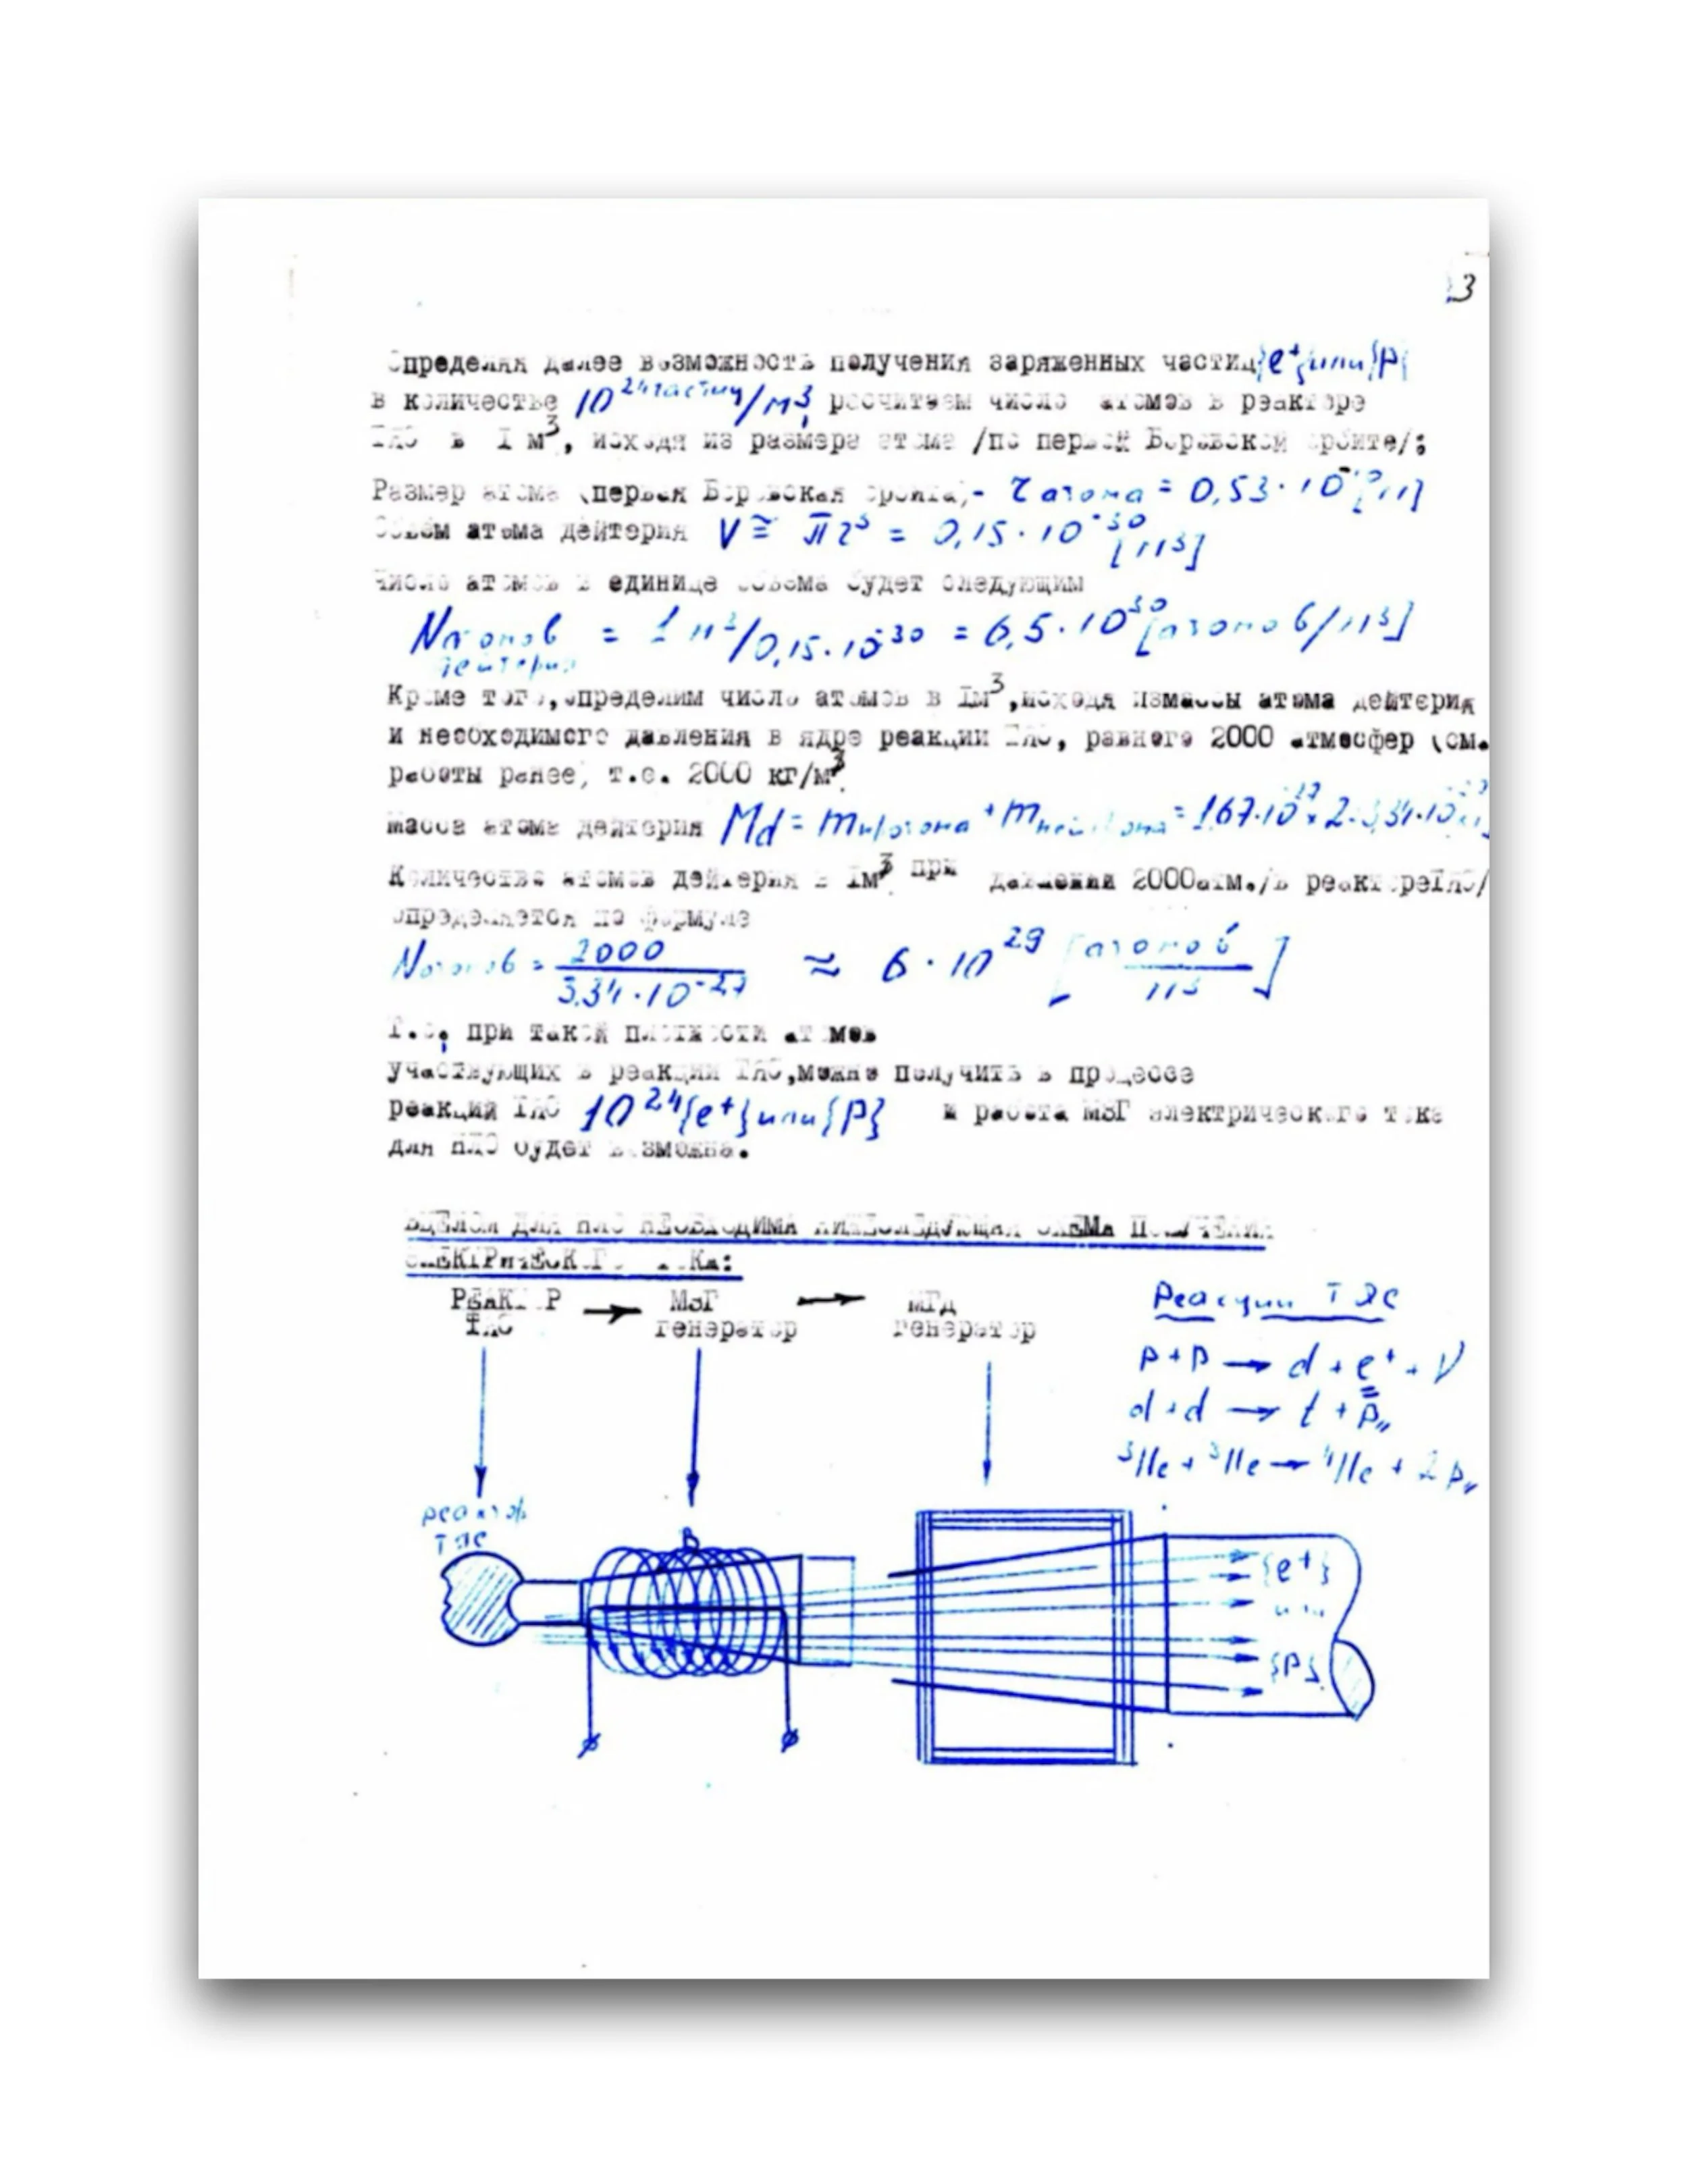 3
Определяя далее возможность получения заряженных частиц {e⁺} или {p}
в количестве 10²⁴ частиц/м³ рассчитаем число атомов в реакторе
ТЯС в 1 м³, исходя из размера атома /по первой Боровской орбите/:
Размер атома (первая Боровская орбита) - r атома = 0,53·10⁻¹⁰ [м]
Объем атома дейтерия V ≅ πr³ = 0,15·10⁻³⁰ [м³]
Число атомов в единице объема будет следующим
N атомов дейтерия = 1 м³/0,15·10⁻³⁰ = 6,5·10³⁰ [атомов/м³]
Кроме того, определим число атомов в 1м³, исходя измассы атома дейтерия
и необходимого давления в ядре реакции ТЯС, равного 2000 атмосфер (см.
работы ранее) т.е. 2000 кг/м³.
Масса атома дейтерия Md = m протона + m нейтрона = 1,67·10⁻²⁷ × 2 = 3,34·10⁻²⁷
Количество атомов дейтерия в 1м³ при давлении 2000атм./в реактореТЯС/
определяется по формуле
N атомов = 2000 / 3,34·10⁻²⁷ ≈ 6·10²⁹ [атомов / м³]
Т.е. при такой плотности атомов
участвующих в реакции ТЯС, можно получить в процессе
реакции ТЯС 10²⁴ {e⁺} или {p} и работа МЗГ электрического тока
для НЛО будет возможна.
ВЦЕЛОМ ДЛЯ НЛО НЕОБХОДИМА НИЖЕСЛЕДУЮЩАЯ СХЕМА ПОЛУЧЕНИЯ
ЭЛЕКТРИЧЕСКОГО ТОКА:
РЕАКТОР ТЯС → МЗГ генератор → МГД генератор
Реакции ТЯС
p + p → d + e⁺ + ν
d + d → t + p
³He + ³He → ⁴He + 2p
реактор
ТЯС
B
{e⁺}
или
{p}